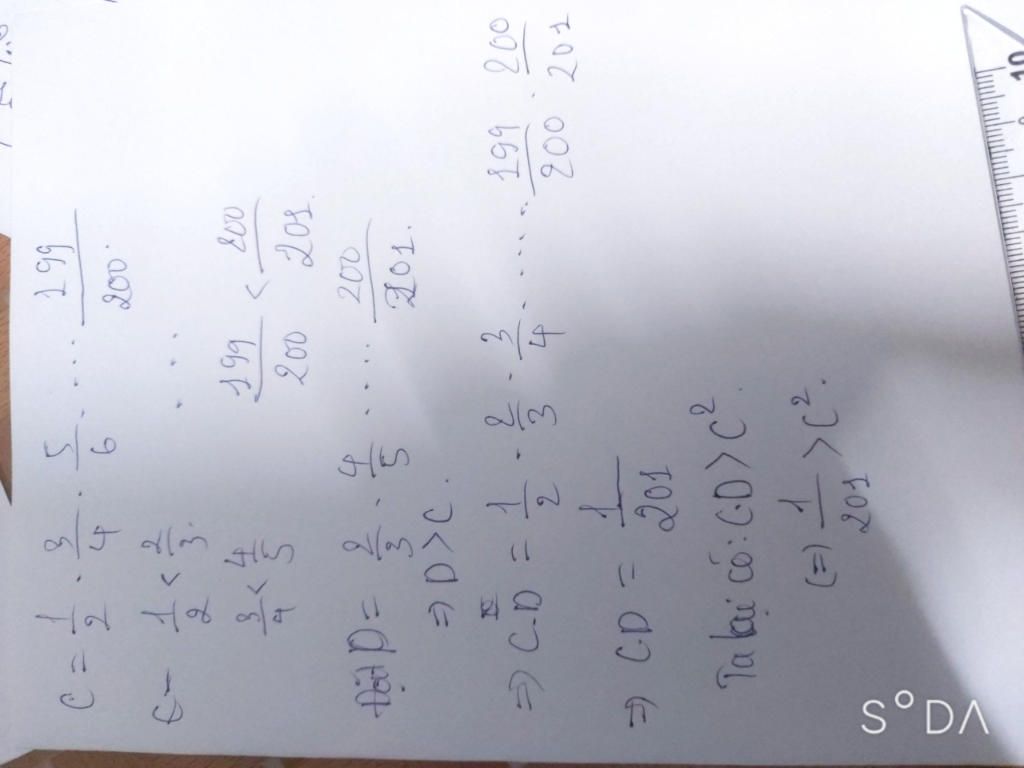 C = 1/2 . 3/4 . 5/6 . .... 199/200.
C - 1/2 < 2/3.
3/4 < 4/5
199/200 < 200/201.
Đặt D = 2/3 . 4/5 . .... 200/201.
=> D > C.
=> C.D = 1/2 . 2/3 . 3/4 . ..... 199/200 . 200/201
=> C.D = 1/201
Ta lại có: C.D > C²
(=) 1/201 > C².
10
SODA